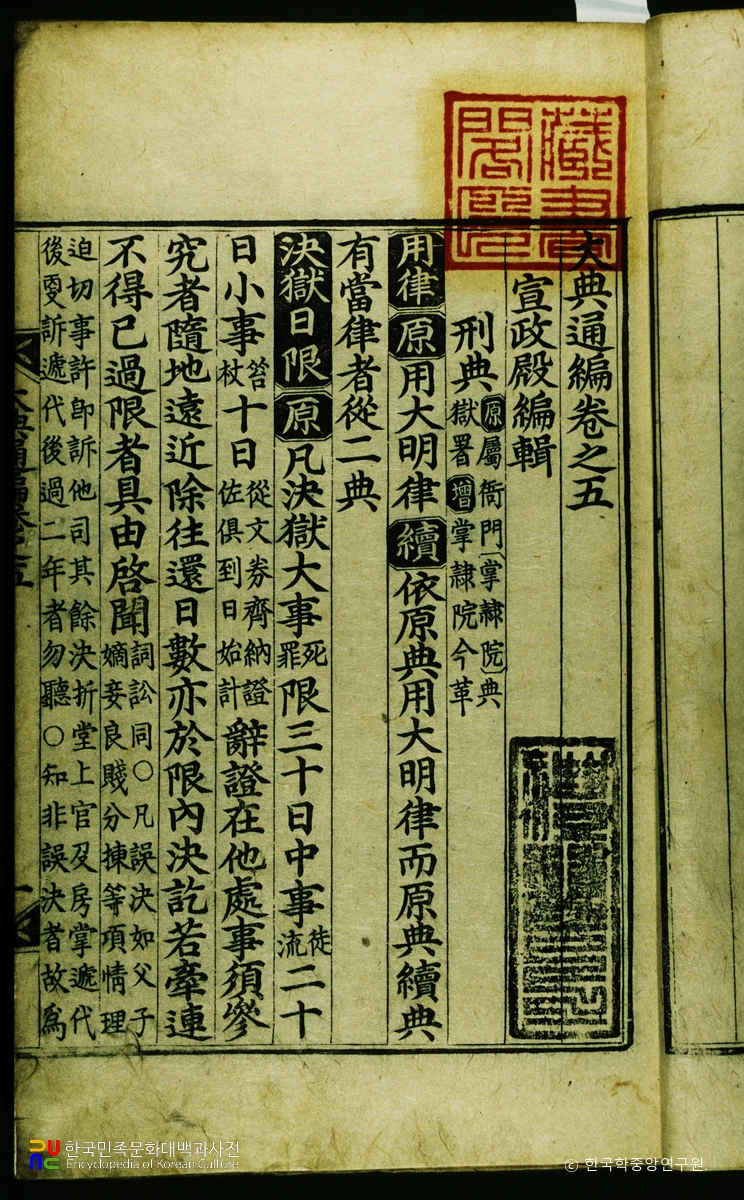 藏書閣印
大典通編卷之五
宣政殿編輯
刑典 原屬衙門掌隷院典獄署增掌隷院今革
用律 原用大明律續依原典用大明律而原典續典
有當律者從二典
決獄日限 原凡決獄大事死罪限三十日中事徒流二十
日小事笞杖十日從文券齊納證佐俱到日始計辭證在他處事須參
究者隨地遠近除往還日數亦於限內決訖若牽連
不得已過限者具由啓聞詞訟同○凡誤決如父子嫡妾良賤分揀等項情理
迫切事許卽訴他司其餘決折堂上官及房掌遞代
後更訴遞代後過二年者勿聽○知非誤決者故爲
大典通編卷之五
한국민족문화대백과사전
Encyclopedia of Korean Culture
© 한국학중앙연구원